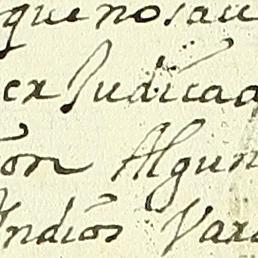 que nos au
er Judicad
on Algun
Indios Vara